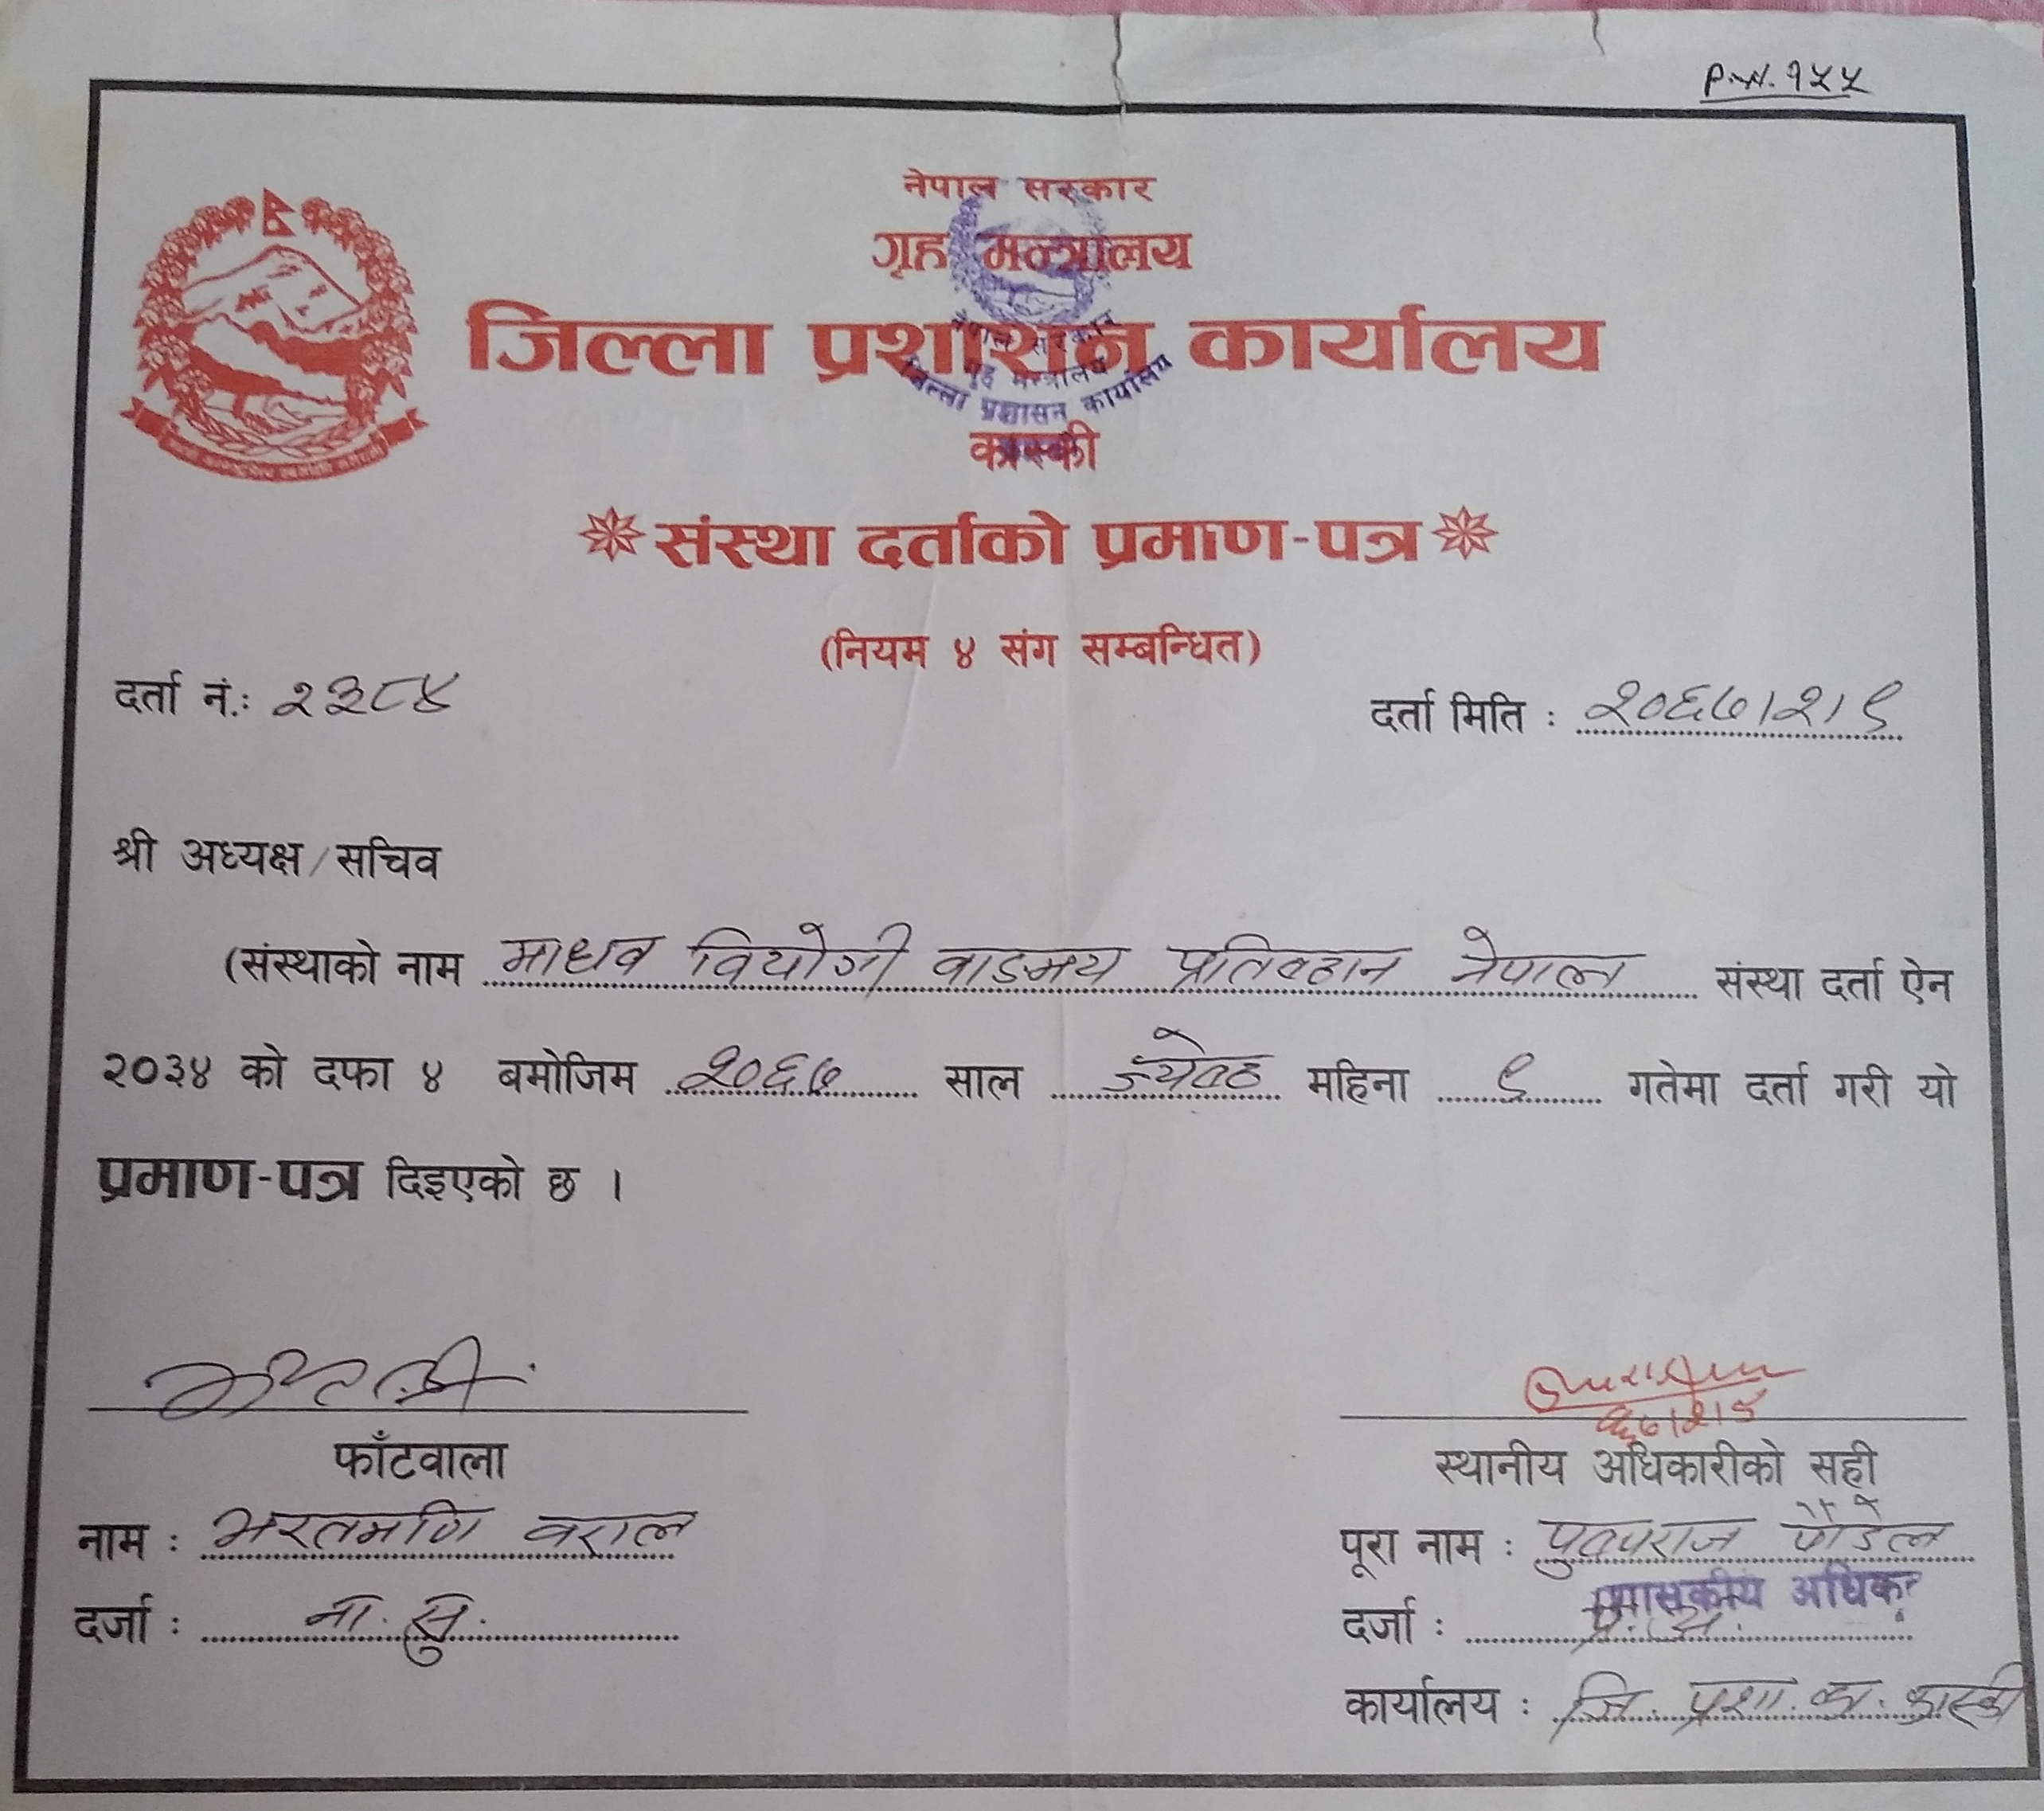 P.N. १५५
नेपाल सरकार
गृह मन्त्रालय
जिल्ला प्रशासन कार्यालय
नेपाल सरकार
गृह मन्त्रालय
जिल्ला प्रशासन कार्यालय
कास्की
संस्था दर्ताको प्रमाण-पत्र
(नियम ४ संग सम्बन्धित)
दर्ता नं.: २३८४
दर्ता मिति : २०६७।२।९
श्री अध्यक्ष/सचिव
(संस्थाको नाम माधव वियोगी वाङमय प्रतिष्ठान नेपाल संस्था दर्ता ऐन
२०३४ को दफा ४ बमोजिम २०६७ साल ज्येष्ठ महिना ९ गतेमा दर्ता गरी यो
प्रमाण-पत्र दिइएको छ ।
फाँटवाला
नाम : भरतमणि बराल
दर्जा : ना. सु.
६७।२।९
स्थानीय अधिकारीको सही
पूरा नाम : पुष्पराज पौडेल
प्रशासकीय अधिकृत
दर्जा : प्र. अ.
कार्यालय : जि. प्रशा. का. कास्की